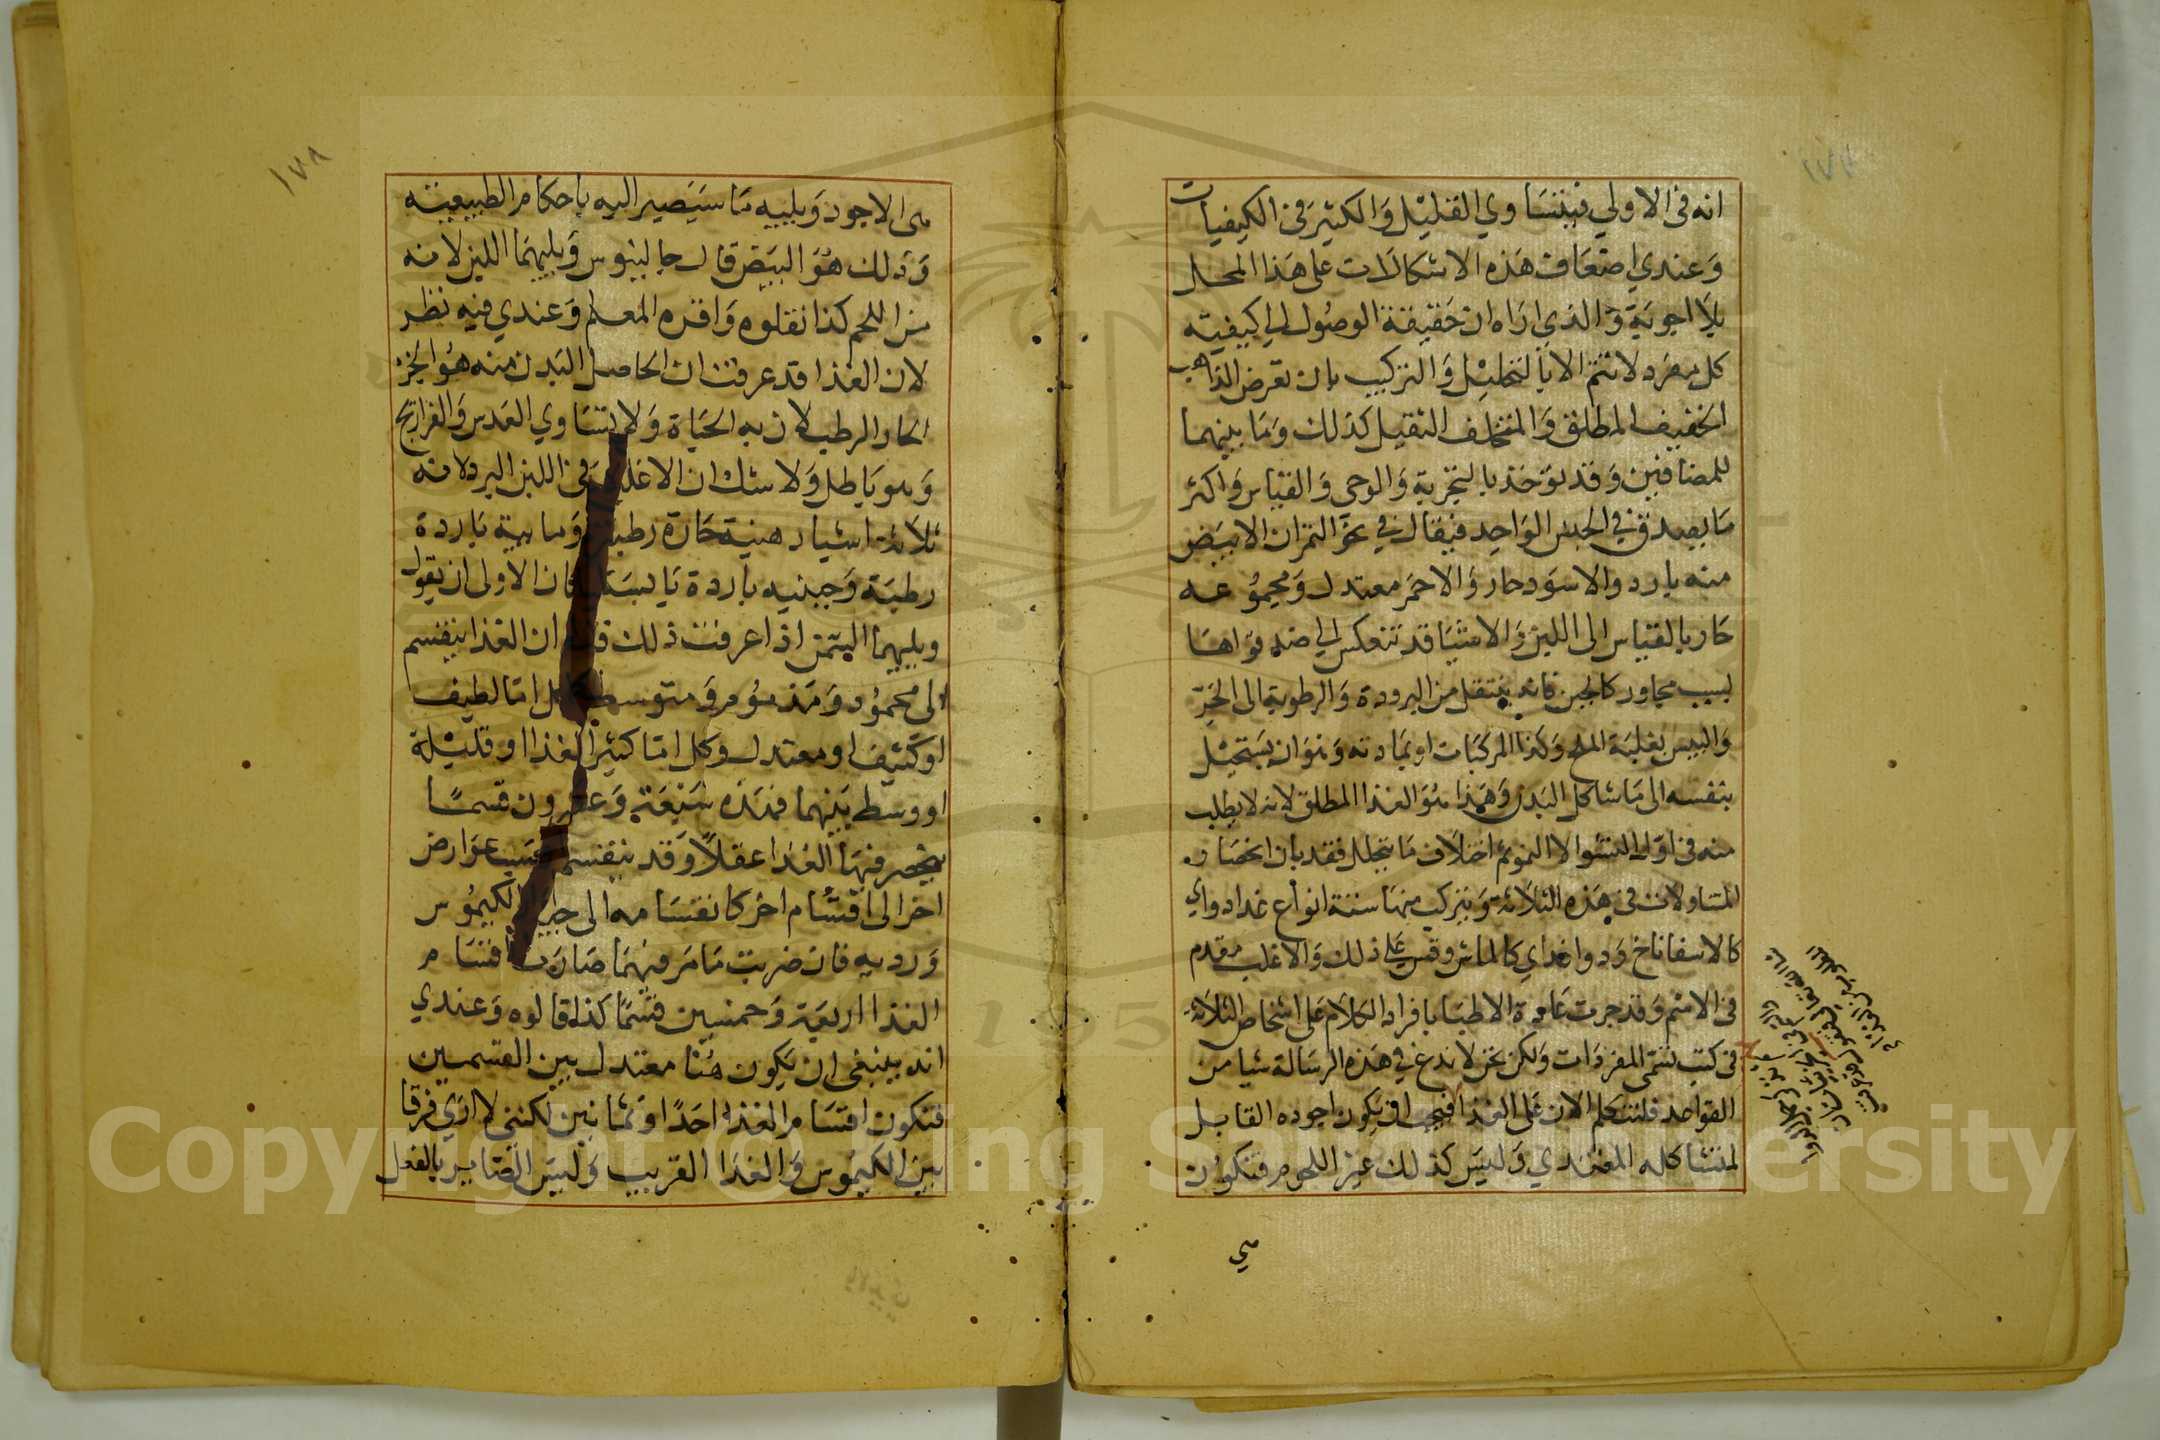 انه فى الاولي فيتساوي القليل والكثير فى الكيفيات
وعندي اضعاف هذه الاشكالات على هذا المحل
بلا اجوبة والذي اراه ان حقيقة الوصول الى كيفية
كل مفرد لا تتم الا بالتحليل والتركيب بان تعرض الذاهب
الخفيف المطلق والمتخلف الثقيل كذلك وما بينهما
للمضافين وقد توخذ بالتجربة والوحى والقياس واكثر
ما يصدق فى الجنس الواحد فيقال فى نحو التمر ان الابيض
منه بارد والاسود حار والاحمر معتدل ومجموعه
حار بالقياس الى اللبن والاشيا قد تنعكس الى ضد قواها
لسبب مجاور كالجبن فانه ينتقل من البرودة والرطوبة الى الحر
واليبس بغلبة الملح وكذا المركبات او بمادته وهو ان يستحيل
بنفسه الى ما شاكل البدن وهذا هو الغذا المطلق لانه لا يطلب
منه فى اول النشو الا النمو ثم اخلاف ما يتحلل فقد بان انحصار
المتناولات فى هذه الثلاثة ويتركب منها ستة انواع غذا دواي
كالاسفاناخ ودوا غذاي كالماش وقس على ذلك والاغلب مقدم
فى الاسم وقد جرت عادة الاطبا بافراد الكلام على اشخاص الثلاثة
فى كتب تسمى المفردات ولكن نحن لا ندع فى هذه الرسالة شيا من
القواعد فلنتكلم الان على الغذا فيجب ان يكون اجوده القابل
لمشاكله المغتذي وليس كذلك غير اللحوم فتكون
هى
١٧٨
هى الاجود ويليه ما سيصير اليه باحكام الطبيعية
وذلك هو البيض قال جالينوس ويليهما اللبن لانه
من اللحم كذا نقلوه واقره المعلم وعندي فيه نظر
لان الغذا قد عرفت ان الحاصل للبدن منه هو الجز
الحار الرطب لان به الحياة ولا يتساوي العدس والفراريج
وهو باطل ولا شك ان الاغلب فى اللبن البرد لانه
ثلاثة اشيا دهنية حارة رطبة وماىية باردة
رطبة وجبنيه باردة يابسة فكان الاولى ان يقول
ويليهما السمن اذا عرفت ذلك فنقول ان الغذا ينقسم
الى محمود ومذموم ومتوسط وكل اما لطيف
او كثيف او معتدل وكل اما كثير الغذا او قليله
او وسط بينهما فهذه سبعة وعشرون قسما
ينحصر فيها الغذا عقلا وقد ينقسم بحسب عوارض
اخر الى اقسام اخر كانقسامه الى جيد الكيموس
ورديه فان ضربت ما مر فيهما صارت اقسام
الغذا اربعة وخمسين قسما كذا قالوه وعندي
انه ينبغى ان يكون هنا معتدل بين القسمين
فتكون اقسام الغذا احدا وثمانين لكننى لا اري فرقا
بين الكيموس والغذا القريب وليس الصاير بالفعل